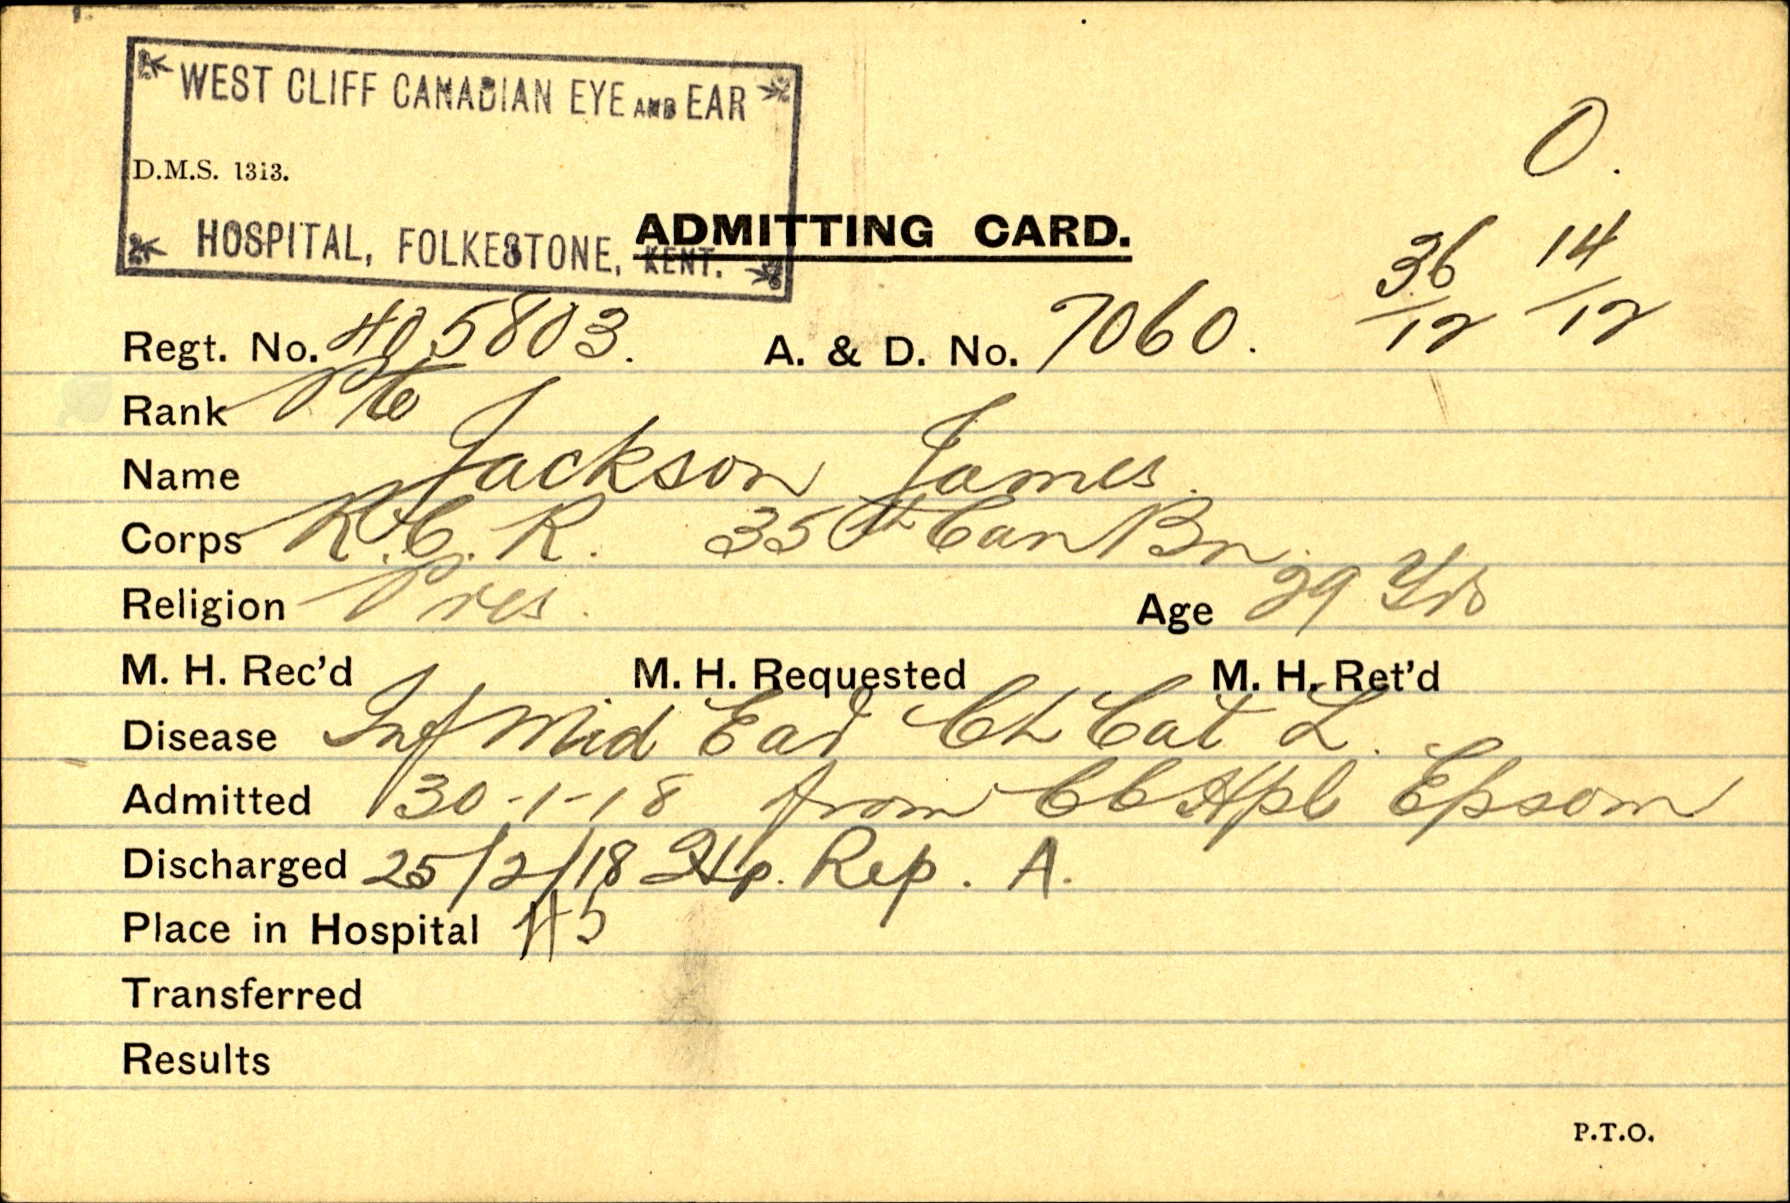 WEST CLIFF CANADIAN EYE AND EAR
D.M.S. 1313.
HOSPITAL, FOLKESTONE, KENT.
O.
ADMITTING CARD.
36/12 14/12
Regt. No. 405803. A. & D. No. 7060.
Rank Pte
Name Jackson James.
Corps R.C.R. 35th Can Bn.
Religion Pres. Age 29 Yrs
M. H. Rec'd M. H. Requested M. H. Ret'd
Disease Inf Mid Ear Ch Cat L.
Admitted 30-1-18 from CC Hpl Epsom
Discharged 25/2/18 Rep. A.
Place in Hospital H5
Transferred
Results
P.T.O.